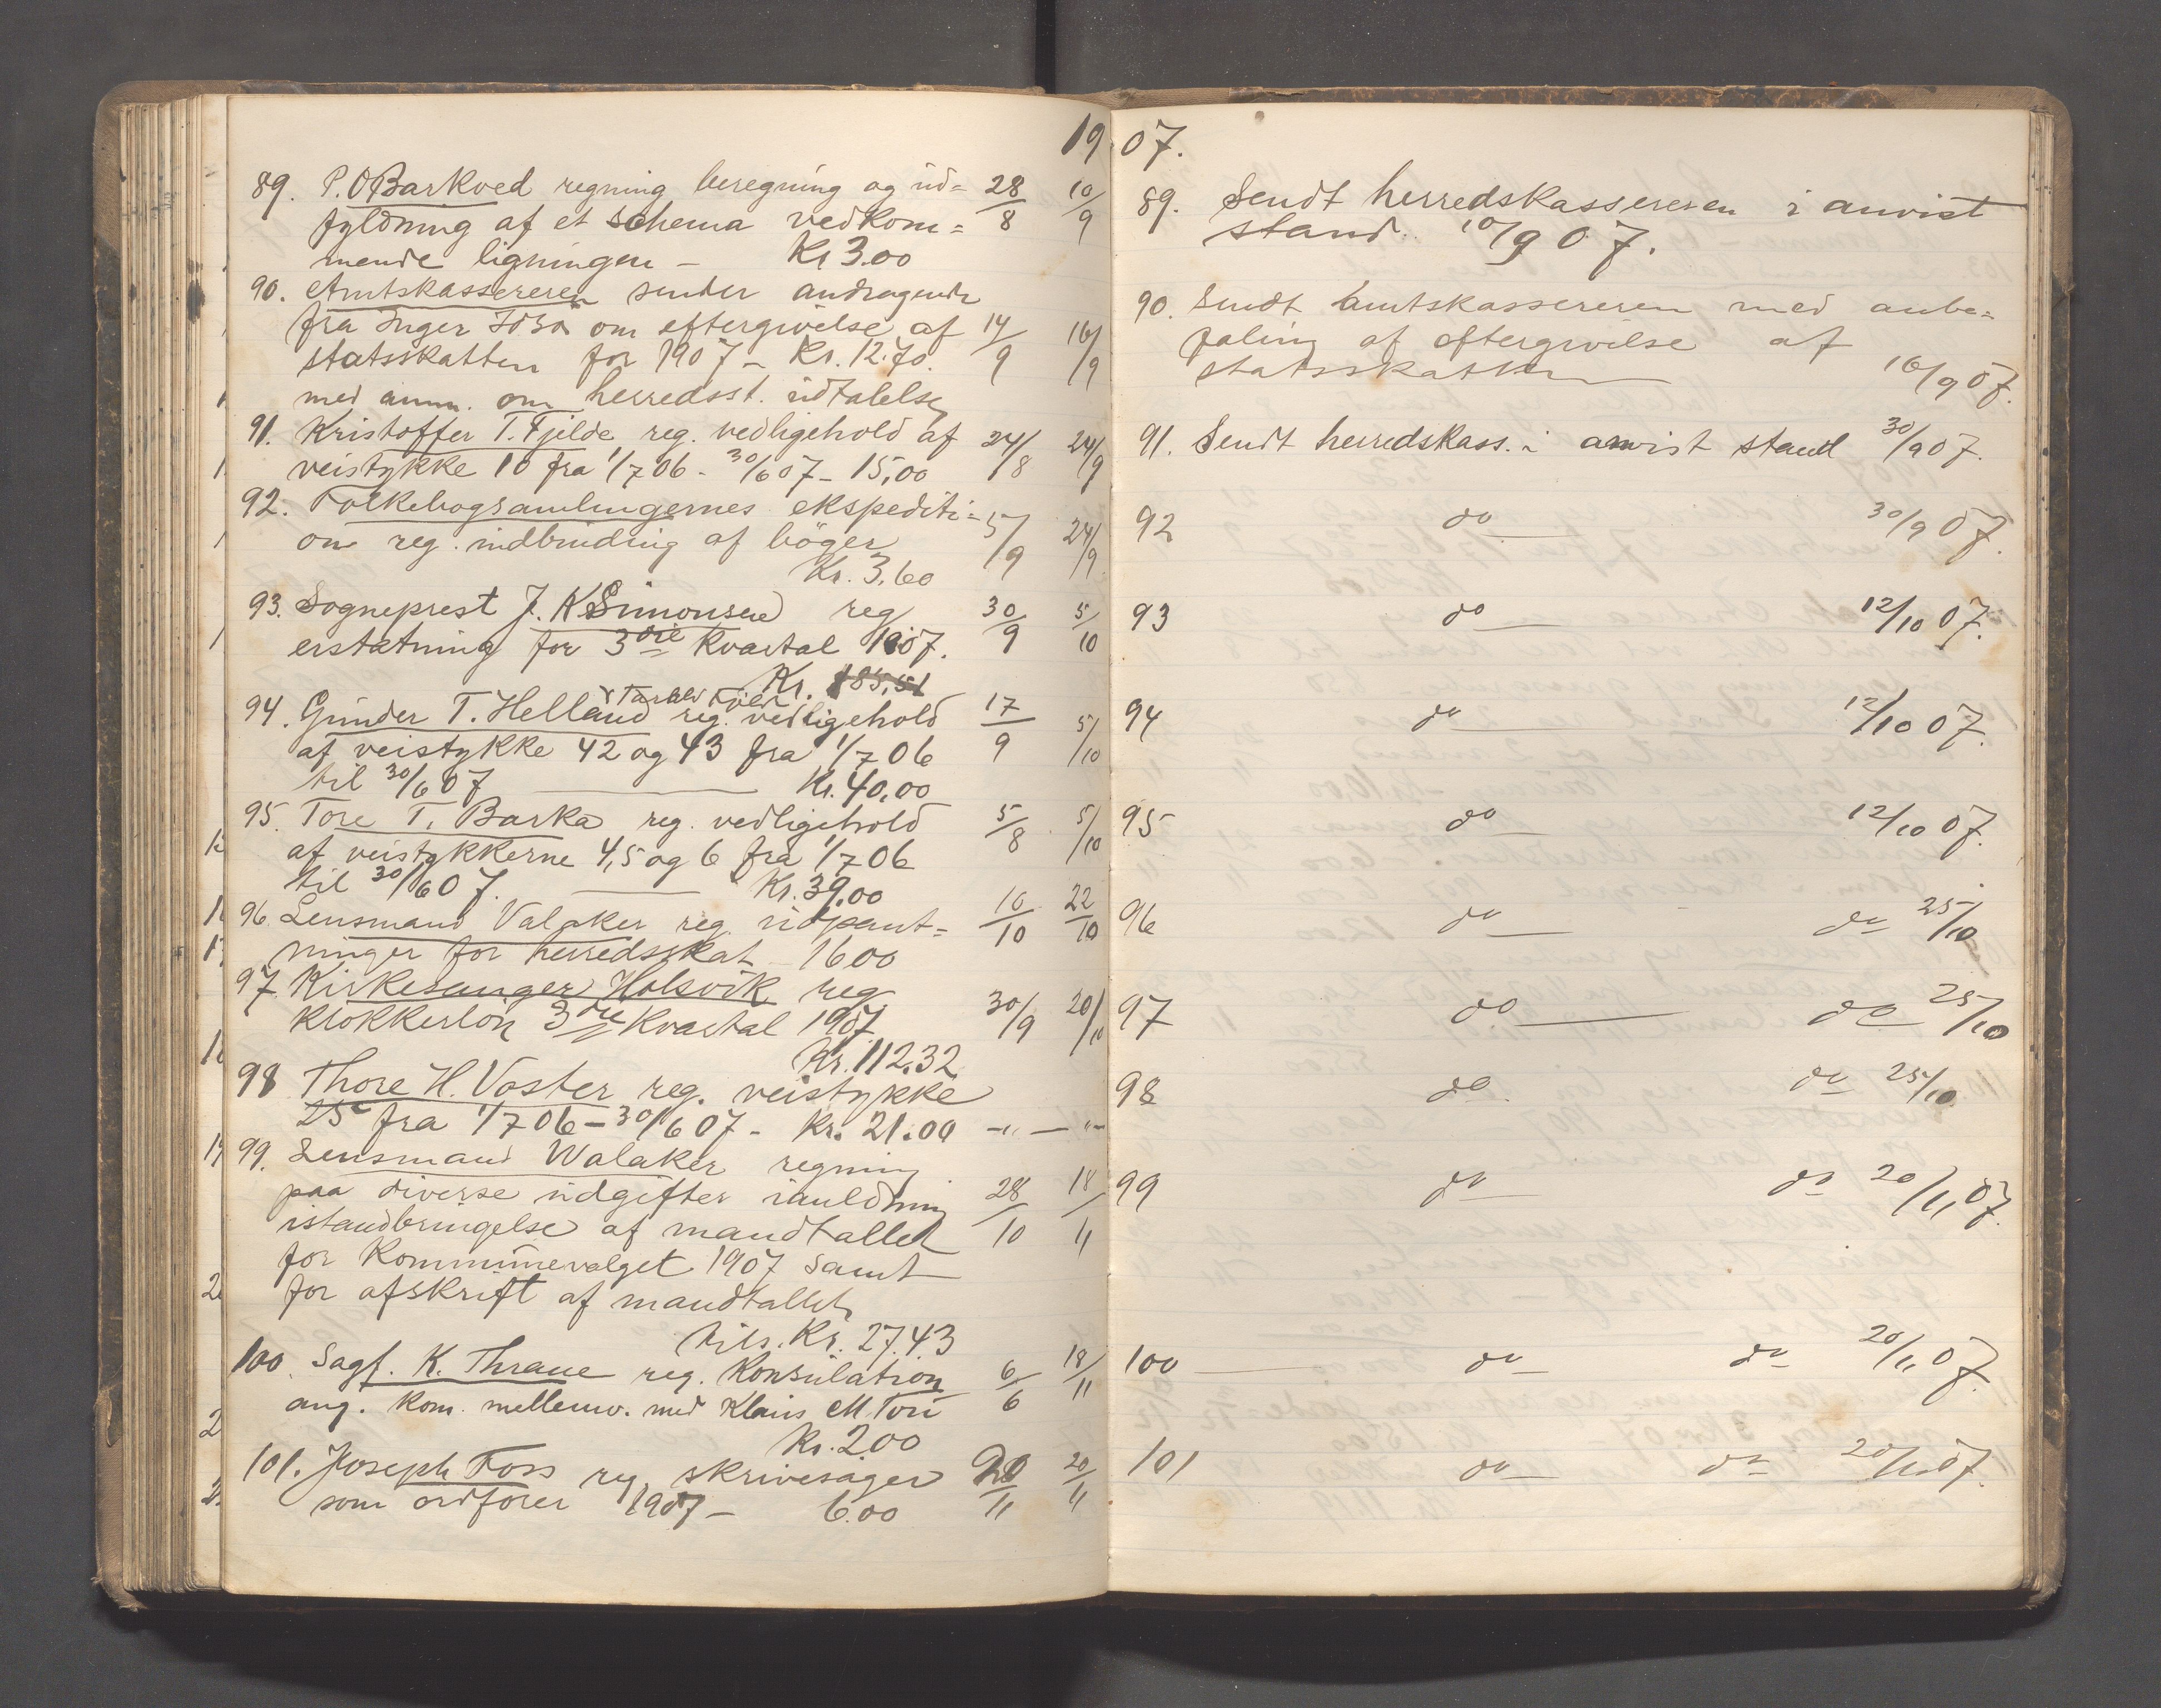 1907.
89. P. O Barkved regning beregning og ud= 28/8 10/9
fyldning af et schema vedkom=
mende ligningen – Kr 3.00
90. Amtskassereren sender andragende
fra Inger om eftergivelse af 14/9 16/9
statsskatten for 1907 – Kr. 12.70.
med anm. om herredsst. udtalelse
91. Kristoffer T. Fjelde reg. vedligehold af 24/8 24/9
veistykke 10 fra 1/7 06 – 30/6 07 – 15,00
92. Folkebogsamlingernes ekspediti= 5/9 24/9
on reg. indbinding af bøger
Kr. 3,60
93. Sogneprest J. K Simonsen reg 30/9 5/10
erstatning for 3die Kvartal 1907.
Kr. 185,51
94. Gunder T. Helland reg. vedligehold 17/9 5/10
af veistykke 42 og 43 fra 1/7 06
til 30/6 07 — Kr. 40,00
95. Tore T. Barka reg. vedligehold 5/8 5/10
af veistykkerne 4,5 og 6 fra 1/7 06
til 30/6 07. — Kr. 39,00
96. Lensmand Valaker reg. udpant= 16/10 22/10
ninger for herredsskat – 16.00
97. Kirkesanger Holsvik reg 30/9 20/10
klokkerløn 3die Kvartal 1907
Kr. 112,32
98 Thore H. Vaster reg. veistykke
25 fra 1/7 06 – 30/6 07 – Kr. 21.00 –"– "–
99. Lensmand Walaker regning
paa diverse udgifter 28/10 18/11
istandbringelse af mandtallet
for Kommunevalget 1907 samt
for afskrift af mandtallet
tils. Kr. 27.43
100. Sagf. K. Thraue reg. Konsulation 6/6 18/11
ang. Kom. mellemv. med Klaus M. Tou
Kr. 2.00
101. Joseph Foss reg. skrivesager 20/11 20/11
som ordfører 1907 – 6.00
89. Sendt herredskassereren i anvist
stand. 10/9 07.
90. Sendt amtskassereren med anbe=
faling af eftergivelse af
statsskatten 16/9 07.
91. Sendt herredskass. i anvist stand 30/9 07.
92 do 30/9 07.
93 do 12/10 07.
94 do 12/10 07.
95 do 12/10 07.
96 do do 25/10
97 do do 25/10
98 do do 25/10
99 do do 20/11 07.
100 do do 20/11 07.
101 do do 20/11 07.